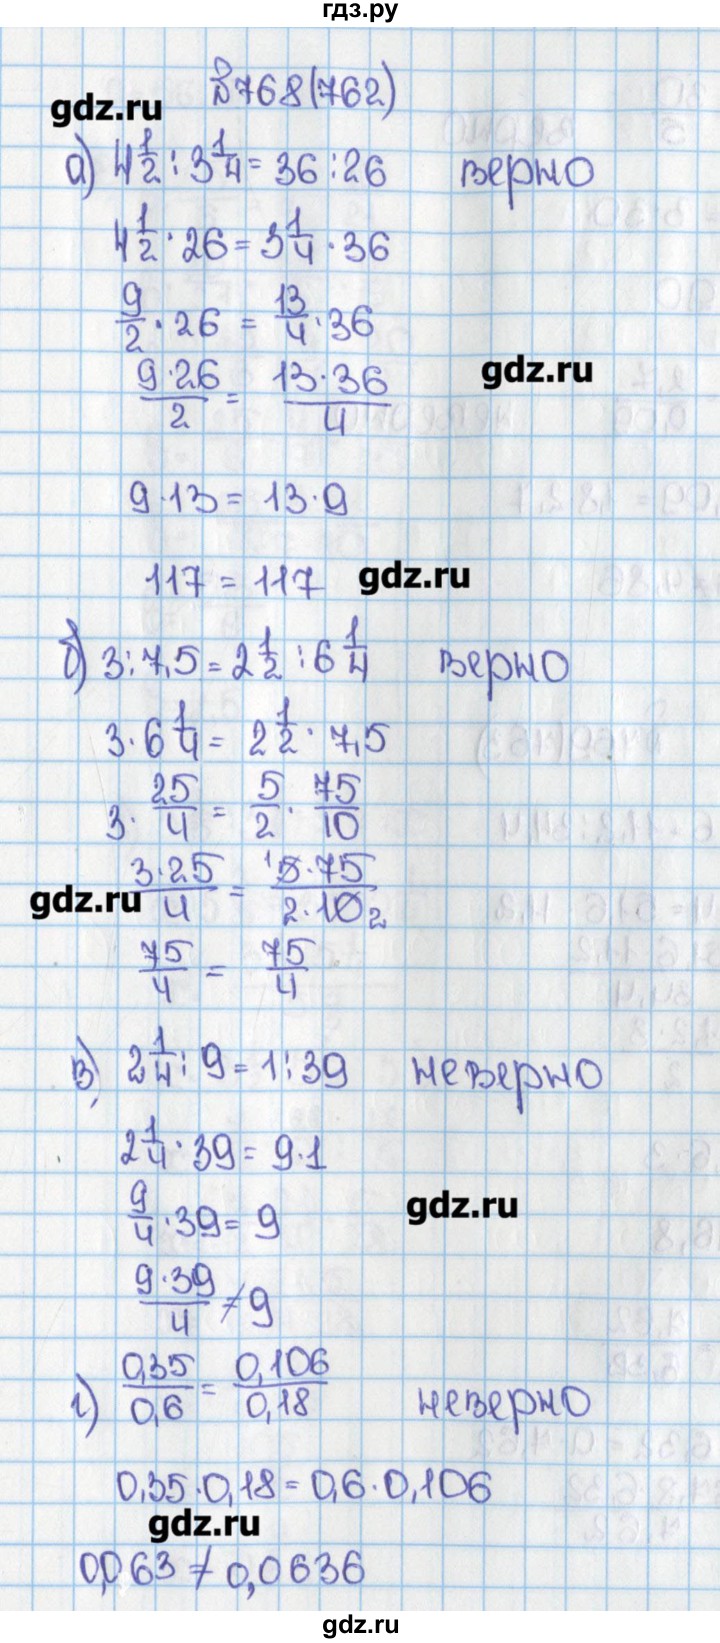 гдз.ру
№768(762)
gdz.ru
а) 4 1/2 : 3 1/4 = 36 : 26 верно
4 1/2 · 26 = 3 1/4 · 36
9/2 · 26 = 13/4 · 36
gdz.ru
9·26/2 = 13·36/4
9·13 = 13·9
117 = 117
gdz.ru
б) 3 : 7,5 = 2 1/2 : 6 1/4 верно
3 · 6 1/4 = 2 1/2 · 7,5
3 · 25/4 = 5/2 · 75/10
gdz.ru
3·25/4 = 1 5·75/2·10 2
75/4 = 75/4
в) 2 1/4 : 9 = 1 : 39 неверно
2 1/4 · 39 = 9·1
9/4 · 39 = 9
gdz.ru
9·39/4 ≠ 9
г) 0,35/0,6 = 0,106/0,18 неверно
0,35·0,18 = 0,6·0,106
gdz.ru
0,063 ≠ 0,0636
gdz.ru